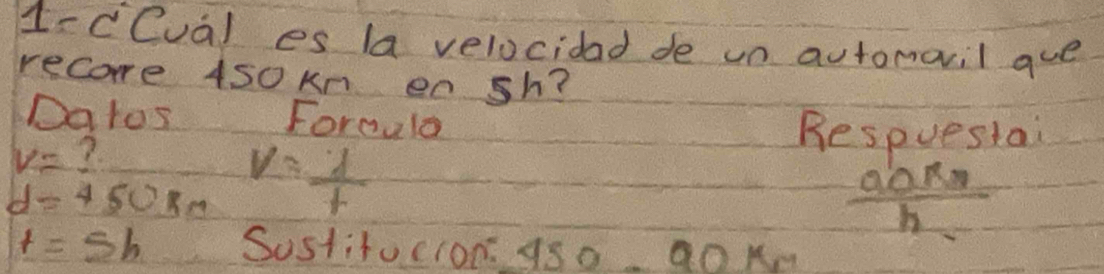 1-¿Cuál es la velocidad de un automovil que
recorre 450 Km en 5h?
Datos Formula Respuesta:
V= ? V= d/t 90Km/h
d= 450Km
t = 5h Sustitucion: 450 = 90 Km